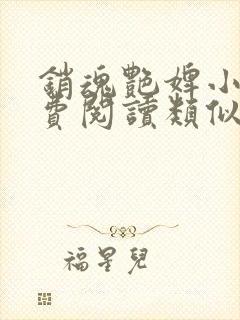 銷魂艷婢小
費閱讀類似
福星兒